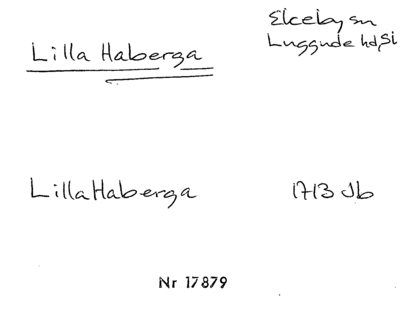 Lilla Haberga
Ekeby sn
Luggude hd, Sk
Lilla Haberga 1713 Jb
Nr 17879